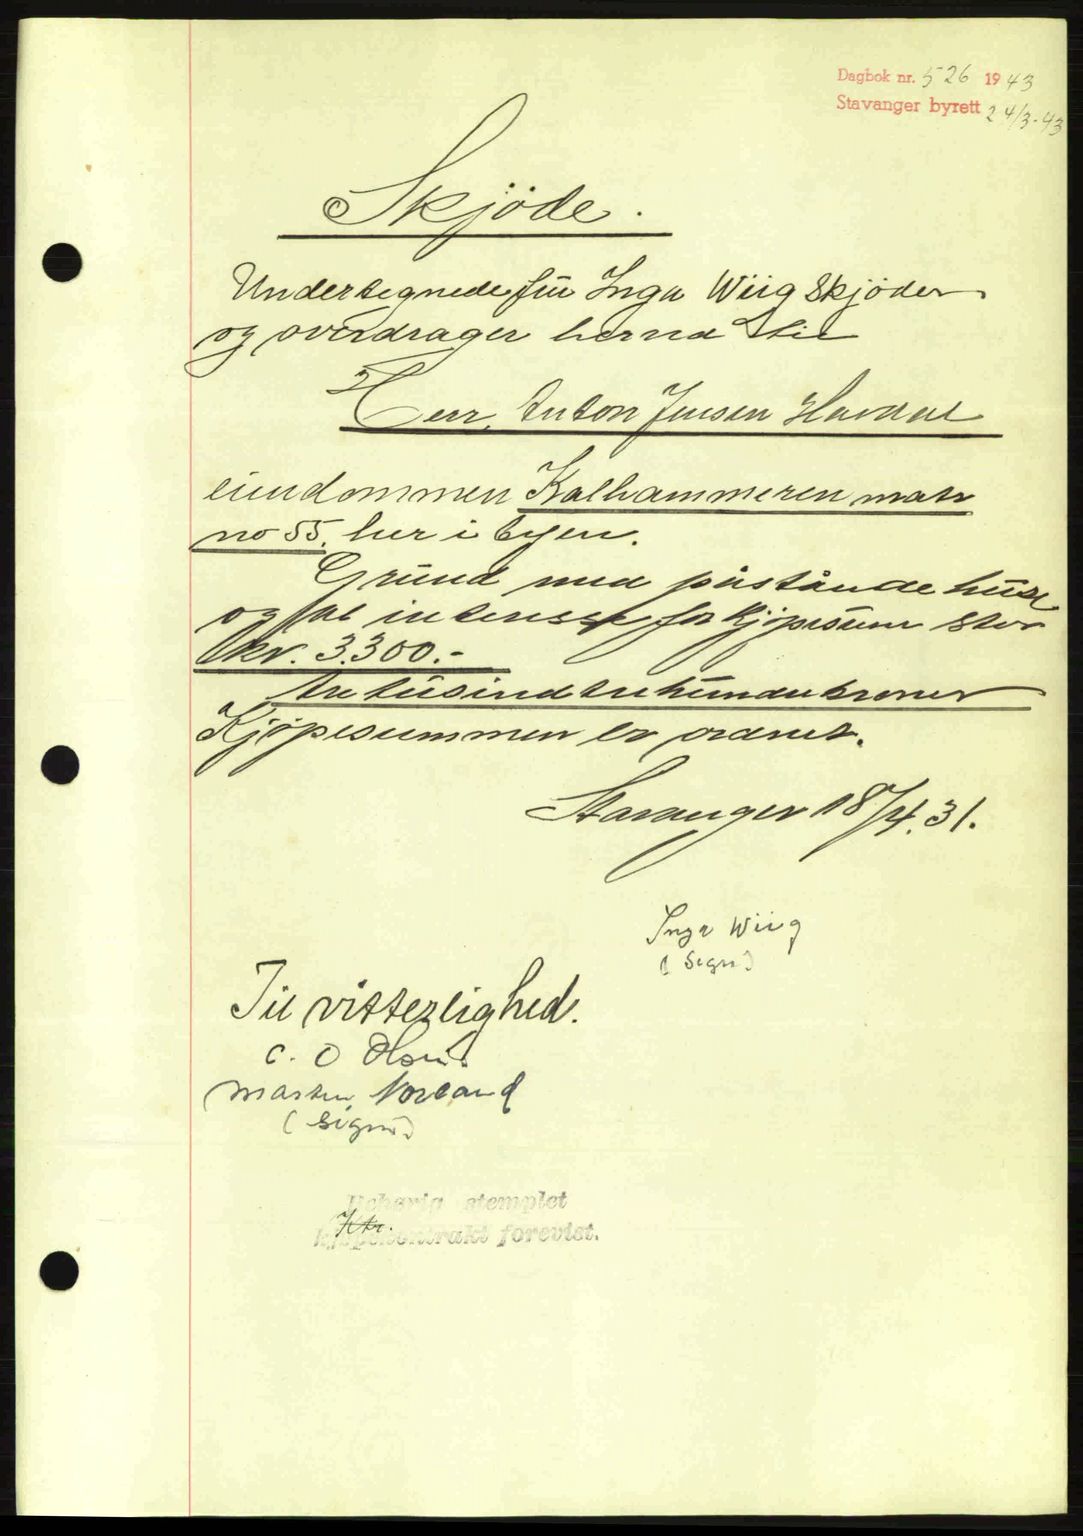 Dagbok nr. 526 1943
Stavanger byrett 24/3-43
Skjöde.
Undertegnede frü Inga Wiig Skjöder
og overdrager herved til
Herr. Anton Jensen Havdal
eiendommen Kalhammeren matr
no 55. her i byen.
Gründ med påstående hüse
og for kjøpesüm stor
kr. 3.300.-
tre tüsind tre hündre kroner
Kjöpesummen er ordnet.
Stavanger 18/4.31.
Inga Wiig
(Sign)
Til vitterlighed.
C. O Olsen
Martin Norland
(Sign)
Behørig stemplet
kjøpekontrakt forevist.